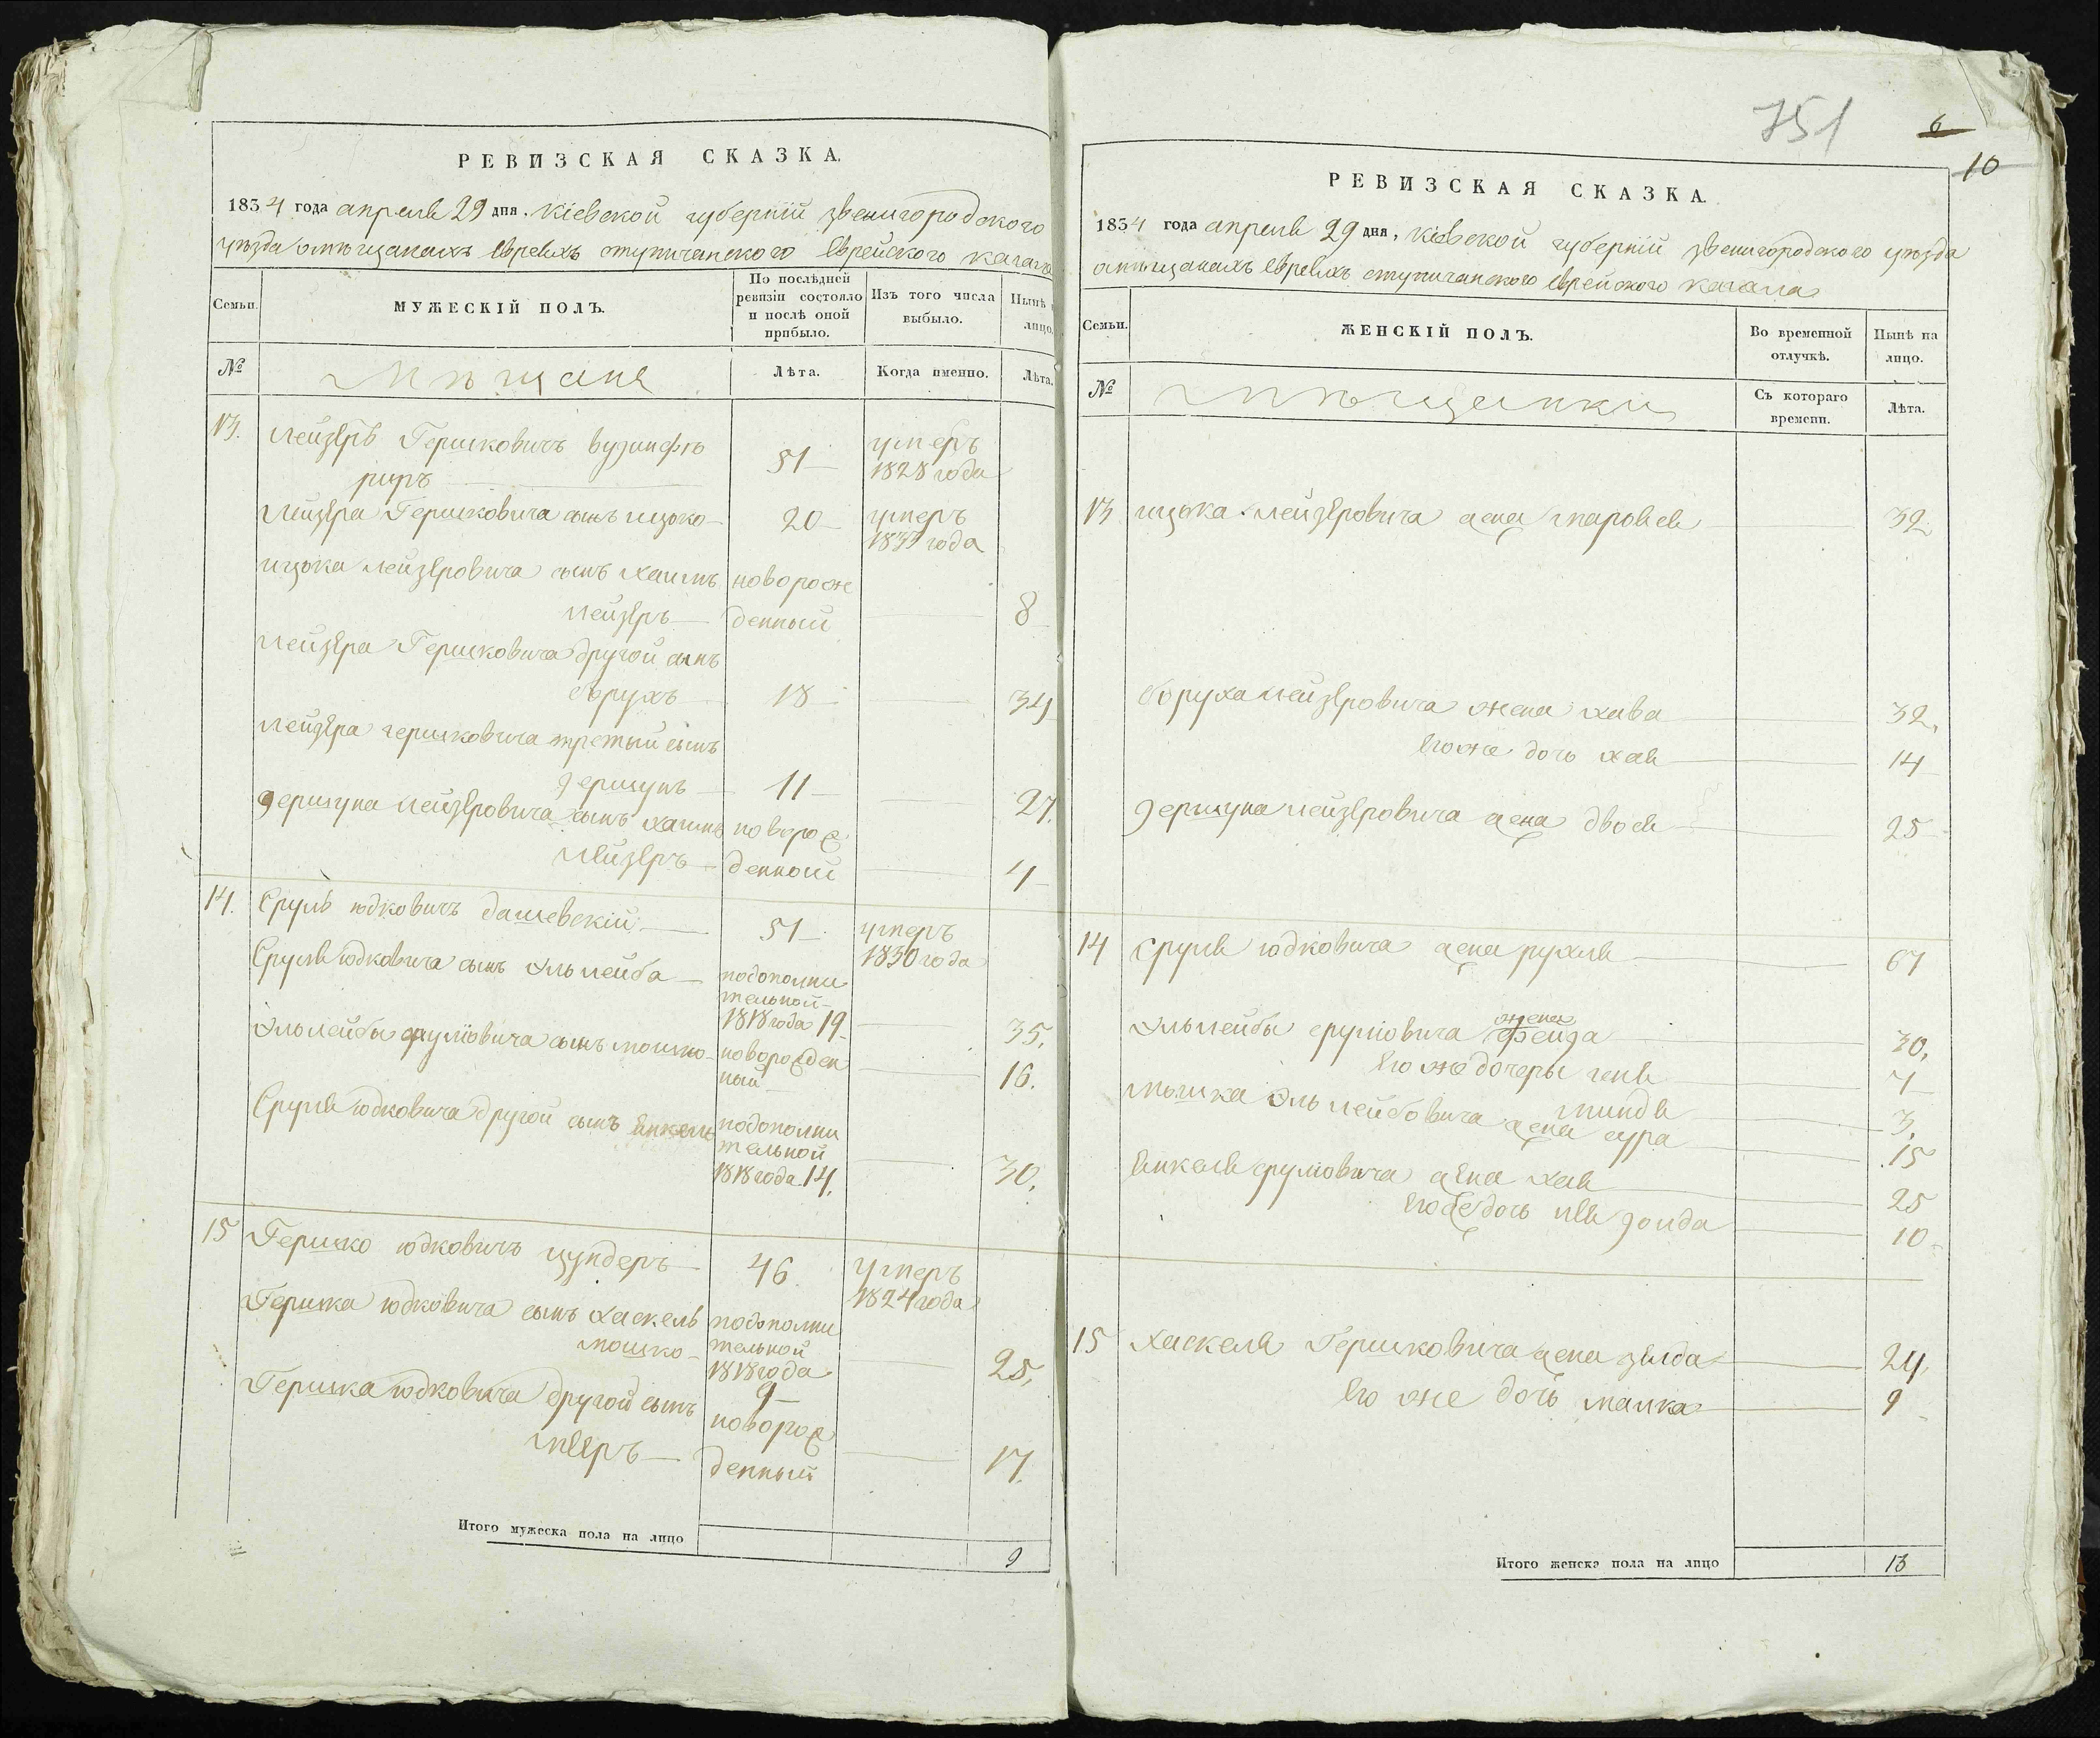 РЕВИЗСКАЯ СКАЗКА.
1834 года апреля 29 дня. Кіевской губерніи звенигородского
уѣзда омѣщанахъ Евреяхъ Еврейского кагала
Семьи.
МУЖЕСКІЙ ПОЛЪ.
По послѣдней ревизіи состояло и послѣ оной прибыло.
Изъ того числа выбыло.
Нынѣ лицо
№
Мѣщаня
Лѣта.
Когда именно.
Лѣта.
13.
Лейзеръ Гершковичъ
51
умеръ
1828 года
Лейзера Гершковича сынъ ицько
20
умеръ
ицька лейзеровича сынъ хаимъ
новорож
лейзеръ
денный
8
Лейзера Гершковича другой сынъ
борухъ
18
34
Лейзера гершковича третый сынъ
гершунъ
11
27.
гершуна лейзеровича сынъ хаимъ
новорож
Лейзеръ
денной
4
14.
Сруль юдковичъ дашевскій
51
умеръ
1830 года
Сруля юдковича сынъ Эльлейба
подополни
тельной
1818 года 19
35.
Эльлейбы сруліовича сынъ мошко
новорожден
ный
16.
Сруля юдковича другой сынъ янкель
подополни
тельной
1818 года 14.
30.
15
Гершко юдковичъ цундеръ
46
умеръ
1824 года
Гершка юдковича сынъ хаскель
мошко
подополни
тельной
1818 года
9
25.
Гершка юдковича другой сынъ
новорож
меръ
денный
17.
Итого мужеска пола на лицо
9
751
6
10
РЕВИЗСКАЯ СКАЗКА.
1834 года апреля 29 дня. Кіевской губерніи звенигородского уѣзда
омѣщанахъ Евреяхъ Еврейского кагала
Семьи.
ЖЕНСКІЙ ПОЛЪ.
Во временной отлучкѣ.
Нынѣ на лицо.
№
Мѣщанки
Съ котораго времени.
Лѣта.
13
ицька лейзеровича жена
32
боруха лейзеровича жена хава
32.
Его же дочь хая
14
гершуна лейзеровича жена двося
25
14
Сруля юдковича жена рухля
67
Эльлейбы сруліовича жена фейга
30.
Его же дочеры геня
7
миндя
3.
Мошка Эльлейбовича жена сура
15
янкеля сруліовича жена хая
25
Его же дочь голда
10
15
Хаскеля Гершковича жена зелда
24.
Его же дочь малка
9
Итого женска пола на лицо
13